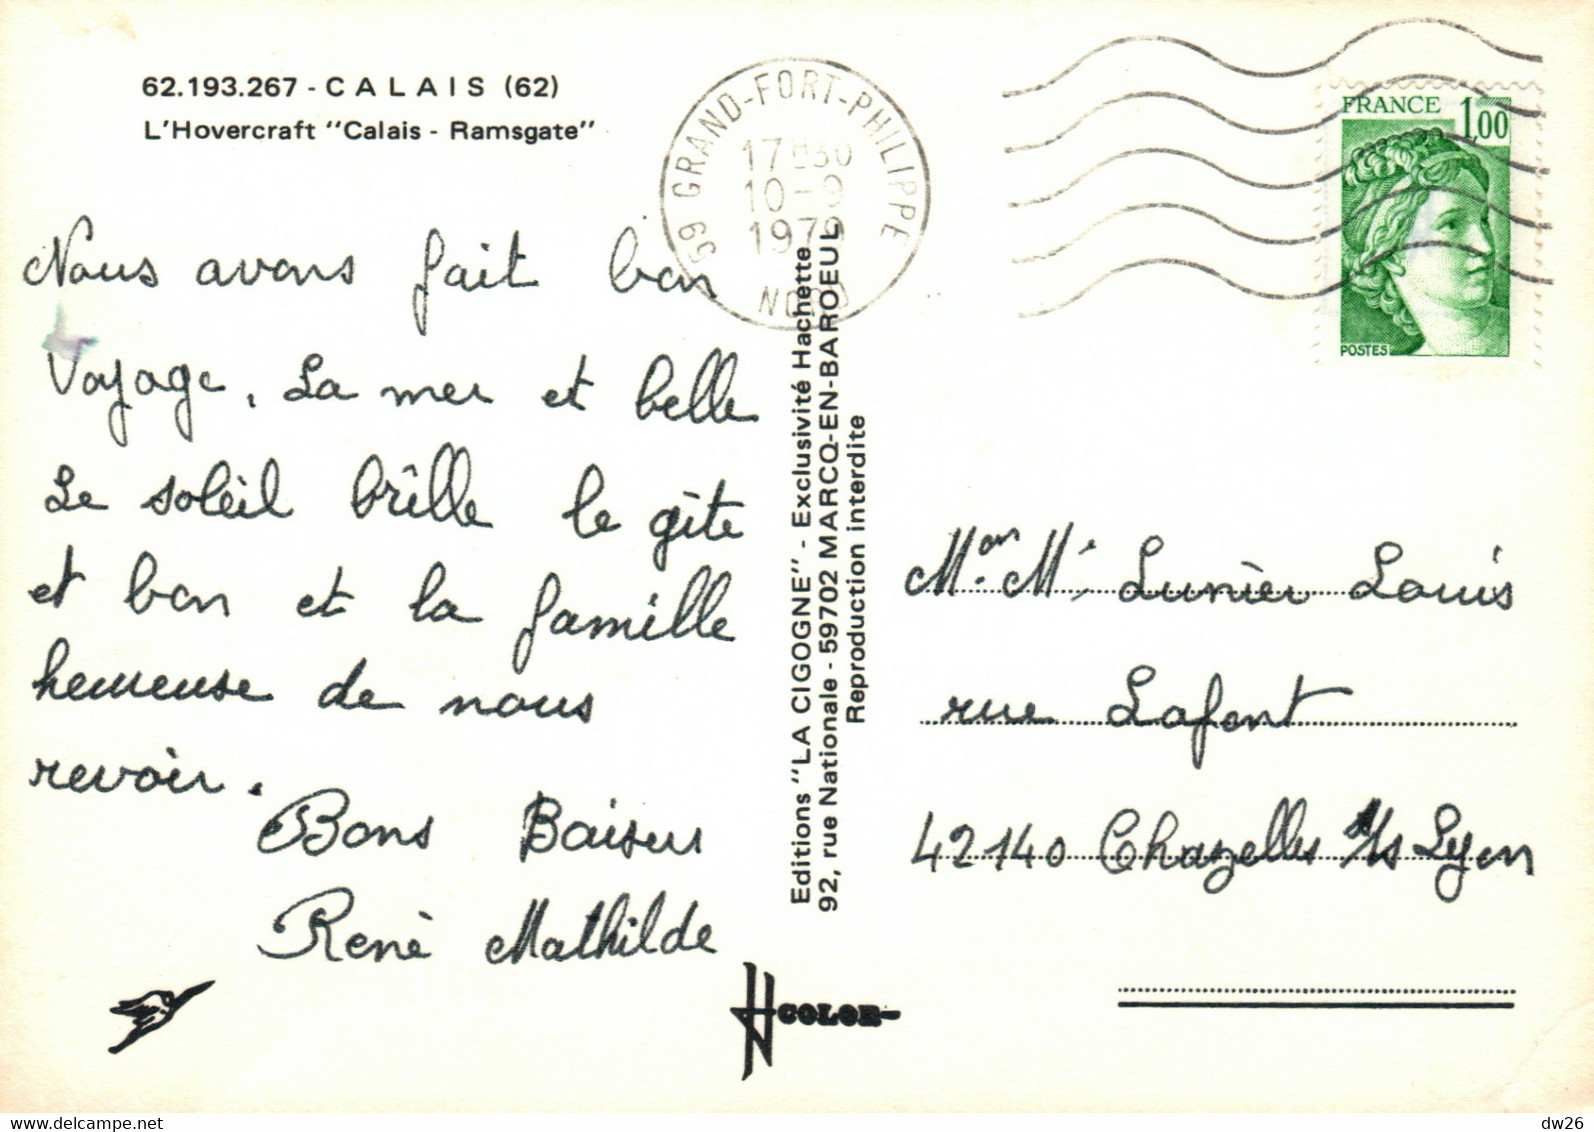 62.193.267 - CALAIS (62)
L'Hovercraft "Calais - Ramsgate"
Nous avons fait bon
Voyage. La mer et belle
Le soleil brille le gîte
et bon et la famille
heureuse de nous
revoir.
Bons Baisers
René Mathilde
59 GRAND-FORT-PHILIPPE
17H30
10-9
1979
NORD
FRANCE 1,00
POSTES
Editions "LA CIGOGNE" - Exclusivité Hachette
92, rue Nationale - 59702 MARCQ-EN-BAROEUL
Reproduction interdite
Mr. Lunier Louis
rue Lafont
42140 Chazelles s/s Lyon
COLOR
delcampe.net
dw26